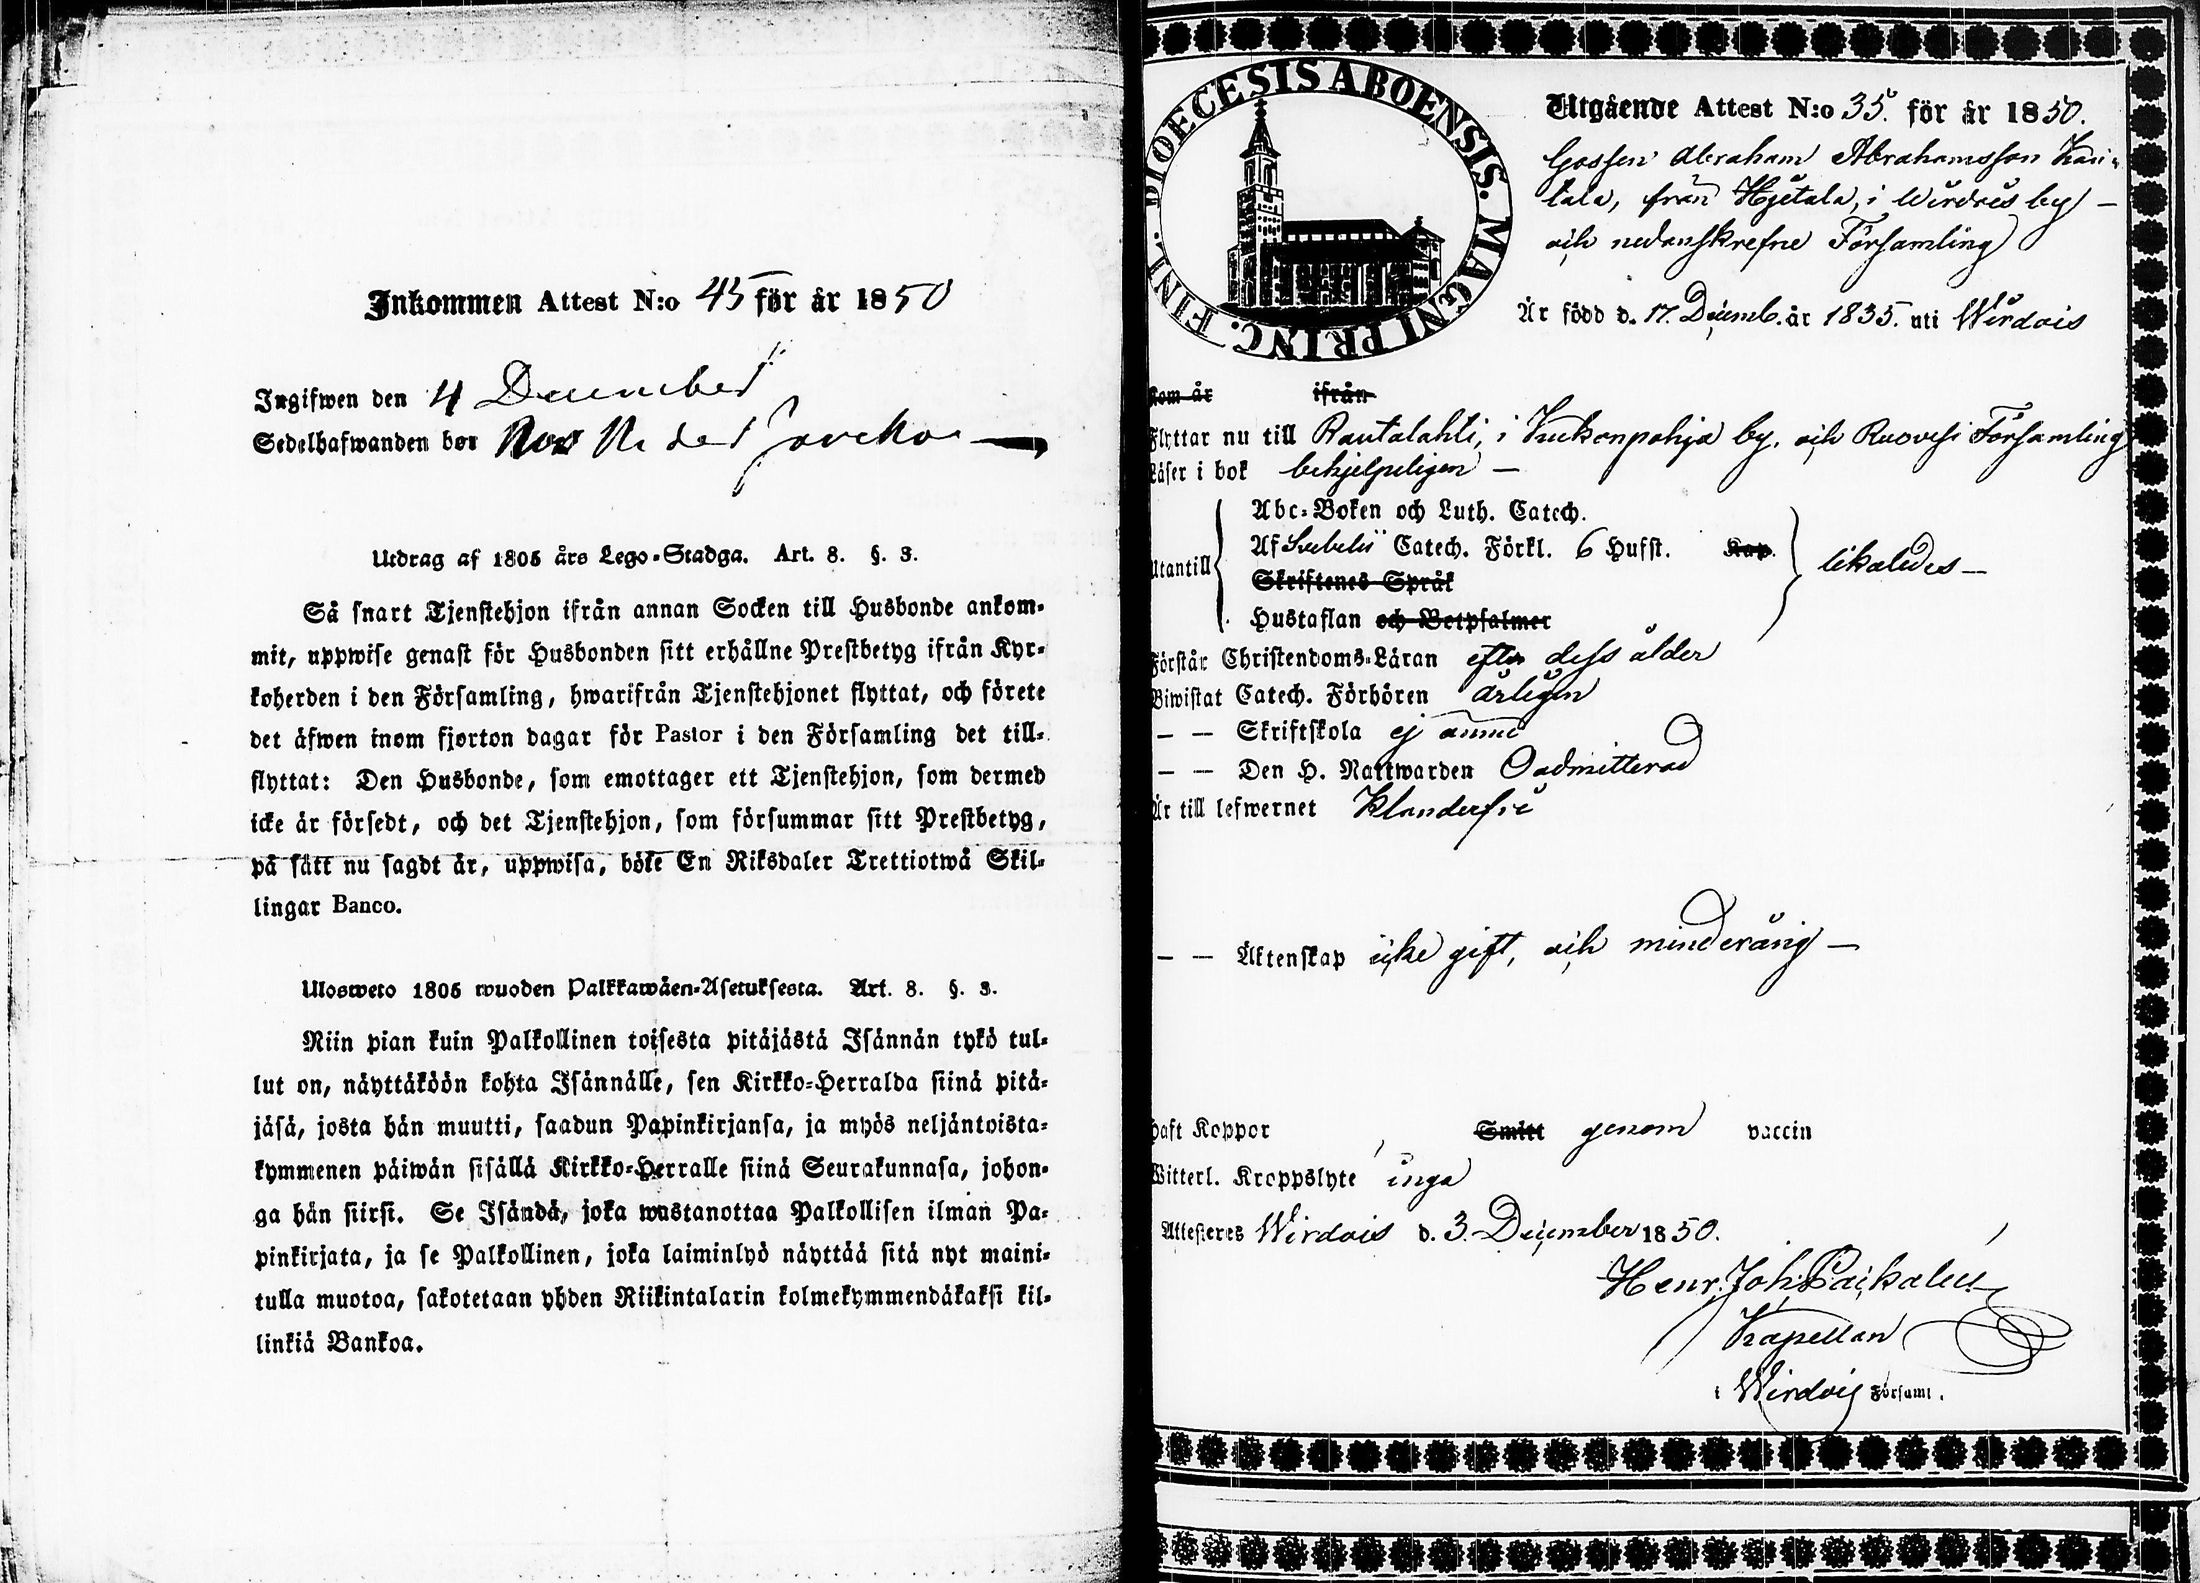 Inkommen Attest N:o 45 för år 1850
Ingifwen den 4 December
Sedelhafwanden bor
Utdrag af 1805 års Lego-Stadga. Art. 8. §. 3.
Så snart Tjenstehjon ifrån annan Socken till Husbonde ankom-
mit, uppwise genast för Husbonden sitt erhållne Prestbetyg ifrån Kyr-
koherden i den Församling, hwarifrån Tjenstehjonet flyttat, och förete
det äfwen inom fjorton dagar för Pastor i den Församling det till-
flyttat: Den Husbonde, som emottager ett Tjenstehjon, som dermed
icke är försedt, och det Tjenstehjon, som försummar sitt Prestbetyg,
på sätt nu sagdt är, uppwisa, böte En Riksdaler Trettiotwå Skil-
lingar Banco.
Ulosweto 1805 wuoden Palkkawäen-Asetuksesta. Art. 8. §. 3.
Niin pian kuin Palkollinen toisesta pitäjästä Isännän tykö tul-
lut on, näyttäköön kohta Isännälle, sen Kirkko-Herralda siinä pitä-
jäsä, josta hän muutti, saadun Papinkirjansa, ja myös neljäntoista-
kymmenen päiwän sisällä Kirkko-Herralle siinä Seurakunnasa, johon-
ga hän siirsi. Se Isändä, joka wastanottaa Palkollisen ilman Pa-
pinkirjata, ja se Palkollinen, joka laiminlyö näyttää sitä nyt maini-
tulla muotoa, sakotetaan yhden Riikintalarin kolmekymmendäkaksi kil-
linkiä Bankoa.
DIOECESIS ABOENSIS. MAGNI PRINC. FINL.
Utgående Attest N:o 35. för år 1850.
Gossen Abraham Abrahamsson Kan-
tala, från Hjetala, i Wirdois by –
och nedanskrefne Församling
Är född d. 17. Decemb. år 1835. uti Wirdois
Kom år ifrån
Flyttar nu till Rautalahti, i Kuckonpohja by, och Ruovesi Församling
Läser i bok behjelpeligen –
Utantill
Abc-Boken och Luth. Catech.
Af Svebelii Catech. Förkl. 6 Hufst. Kap.
likaledes –
Skriftenes Språk
Hustaflan och Botpsalmer
Förstår Christendoms-Läran efter dess ålder
Biwistat Catech. Förhören årligen
– – Skriftskola ej ännu
– – Den H. Nattwarden Oadmitterad
Är till lefwernet Klanderfri
– – Äktenskap icke gift, och minderårig –
Haft Koppor Smitt genom vaccin
Witterl. Kroppslyte inga
Attesteres Wirdois d. 3. December 1850.
Henr. Joh.
Kapellan
i Wirdois Församl.